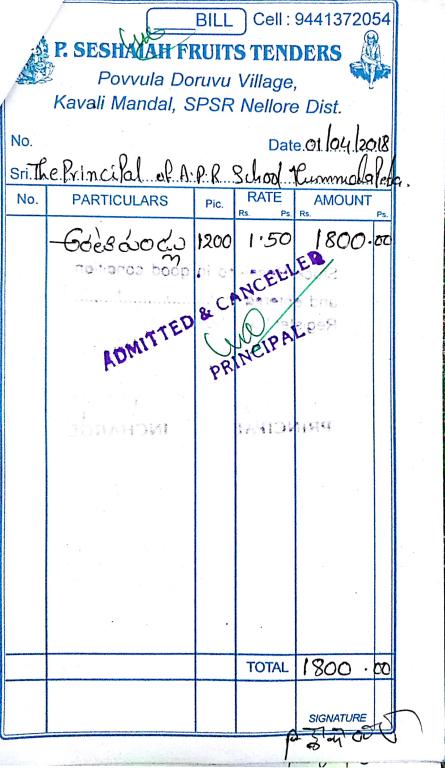 BILL Cell : 9441372054
P. SESHAIAH FRUITS TENDERS
Povvula Doruvu Village,
Kavali Mandal, SPSR Nellore Dist.
No. Date. 01/04/2018
Sri. The Principal of A.P.R School
No. PARTICULARS Pic. RATE AMOUNT
Rs. Ps. Rs. Ps.
అరటి పండ్లు 1200 1.50 1800.00
ADMITTED & CANCELLED
PRINCIPAL
PRINCIPAL INCHARGE
TOTAL 1800.00
SIGNATURE